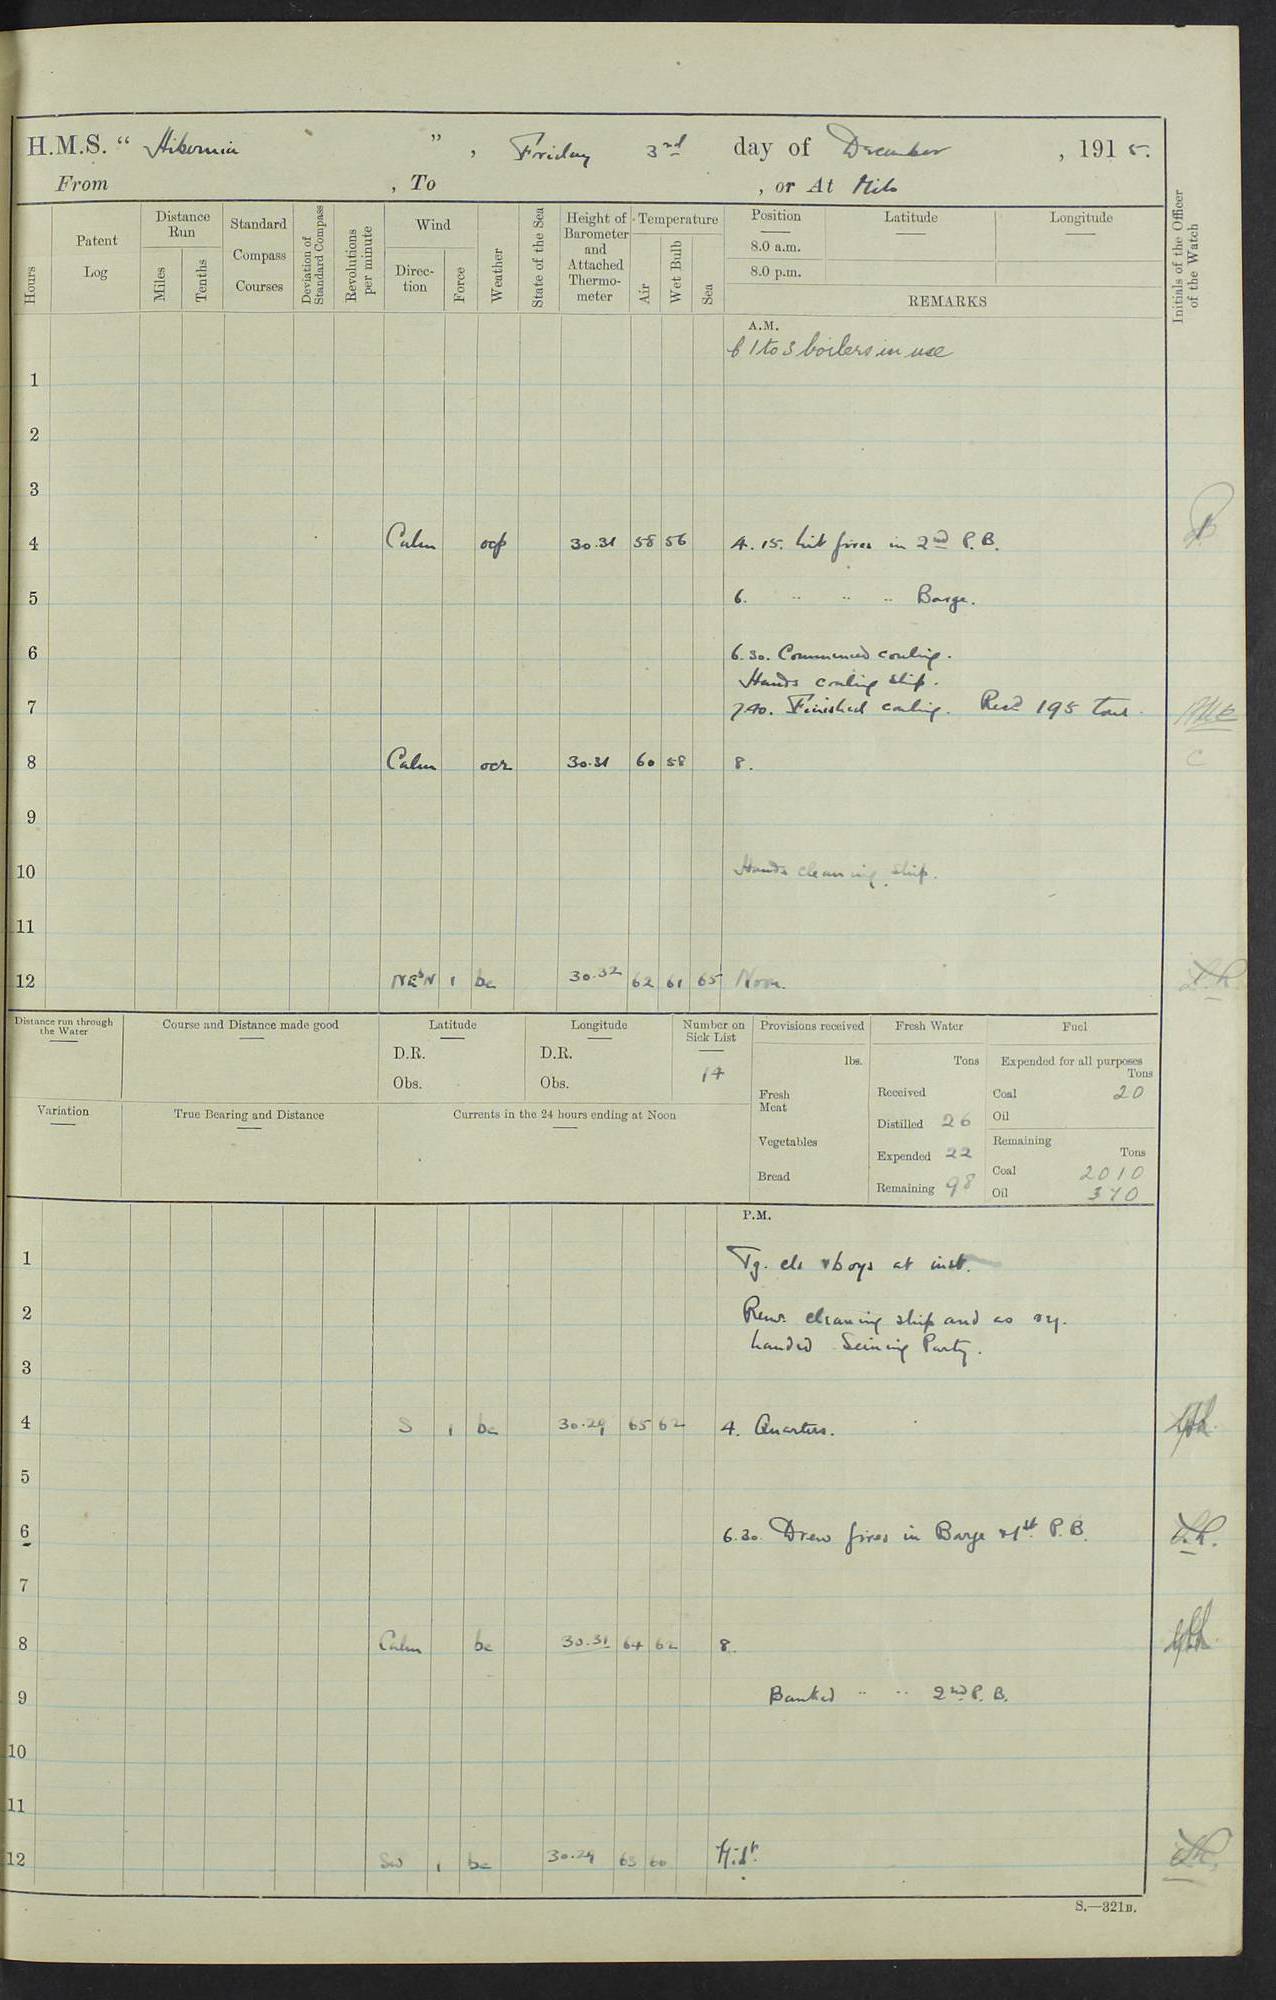 H.M.S. “ Hibernia ” , Friday 3rd day of December , 1915.
From , To , or At Milo
Hours
Patent Log
Distance Run
Miles
Tenths
Standard Compass Courses
Deviation of Standard Compass
Revolutions per minute
Wind
Direc-tion
Force
Weather
State of the Sea
Height of Barometer and Attached Thermo-meter
Temperature
Air
Wet Bulb
Sea
Position
8.0 a.m.
8.0 p.m.
Latitude
Longitude
REMARKS
Initials of the Officer of the Watch
A.M.
1 to 3 boilers in use
1
2
3
4 Calm ocp 30.31 58 56 4.15. Lit fires in 2nd P.B.
5 6. " " " Barge.
6 6.30. Commenced coaling.
Hands coaling ship.
7 7.40. Finished coaling. Recd 195 tons.
8 Calm ocr 30.31 60 58 8.
9
10 Hands cleaning ship.
11
12 NEbN 1 bc 30.32 62 61 65 Noon.
Distance run through the Water
Course and Distance made good
Latitude
D.R.
Obs.
Longitude
D.R.
Obs.
Number on Sick List
14
Provisions received
lbs.
Fresh Meat
Vegetables
Bread
Fresh Water
Tons
Received
Distilled 26
Expended 22
Remaining 98
Fuel
Expended for all purposes
Tons
Coal 20
Oil
Remaining
Tons
Coal 2010
Oil 370
Variation
True Bearing and Distance
Currents in the 24 hours ending at Noon
P.M.
1 Tg. cls & boys at inst.
2 Remr cleaning ship and as rq.
handed Seining Party.
3
4 S 1 bc 30.29 65 62 4. Quarters.
5
6 6.30. Drew fires in Barge & 1st P.B.
7
8 Calm bc 30.31 64 62 8.
9 Banked " " 2nd P.B.
10
11
12 SW 1 bc 30.29 63 60 Midt.
S.—321B.